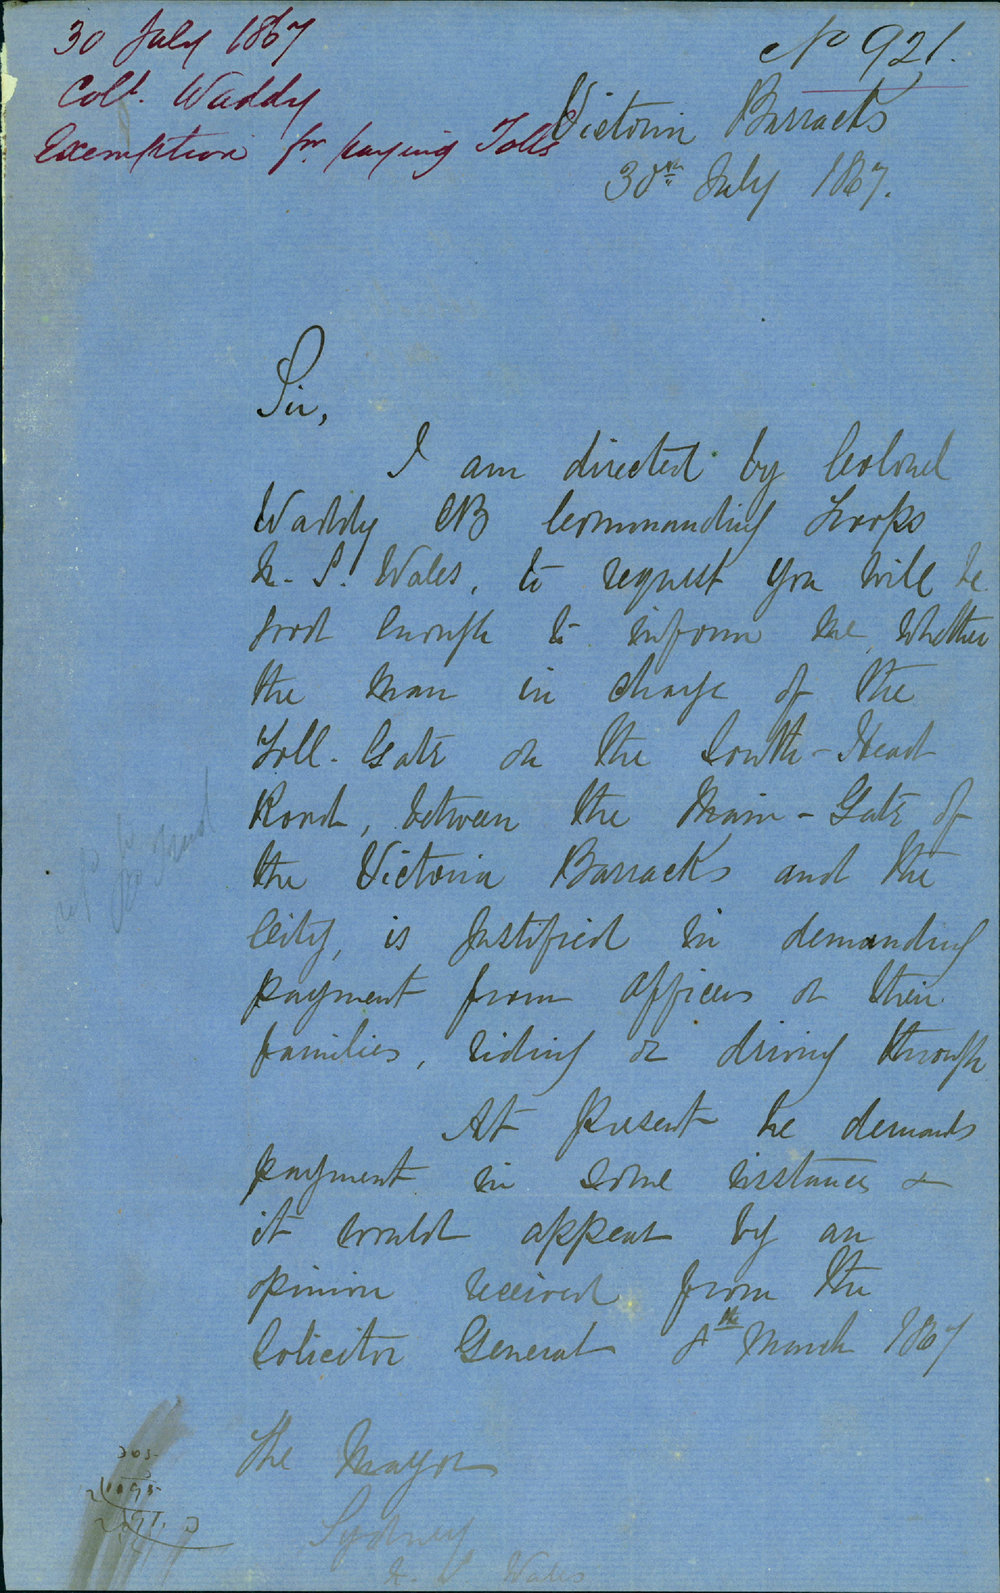 30 July 1867
Coll. Waddy
Exemption for paying Tolls
No 921.
Victoria Barracks
30th July 1867.
Sir,
I am directed by Colonel
Waddy CB Commanding Troops
N. S. Wales, to request you will be
good enough to inform me, whether
the man in charge of the
Toll-Gate on the South-Head
Road, between the Main-Gate of
the Victoria Barracks and the
City, is justified in demanding
payment from officers or their
families, riding or driving through
At present he demands
payment in some instances &
it would appear by an
opinion received from the
Solicitor General 8th March 1867
The Mayor
Sydney
N. S Wales